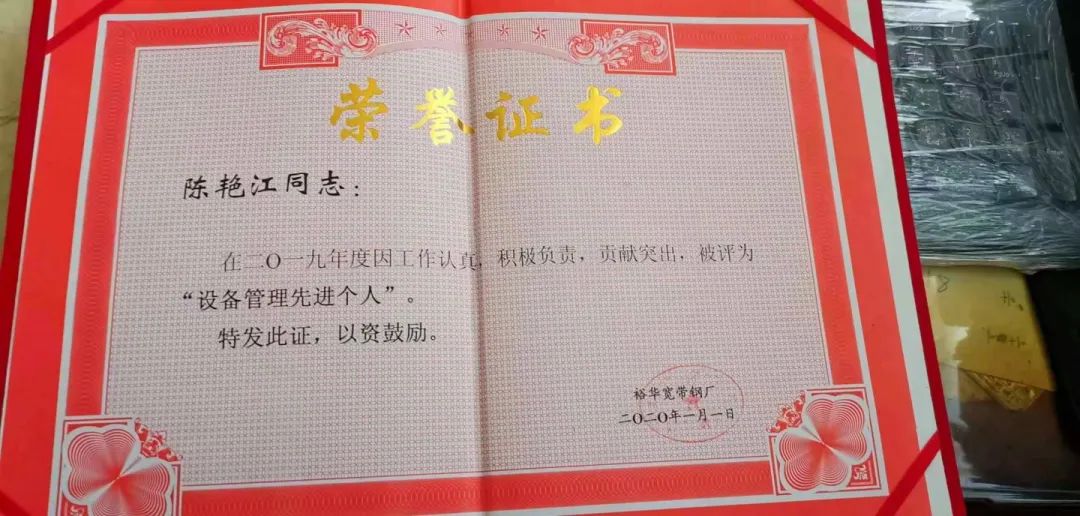 荣誉证书
陈艳江同志：
在二〇一九年度因工作认真，积极负责，贡献突出，被评为
“设备管理先进个人”。
特发此证，以资鼓励。
裕华宽带钢厂
二〇二〇年一月一日